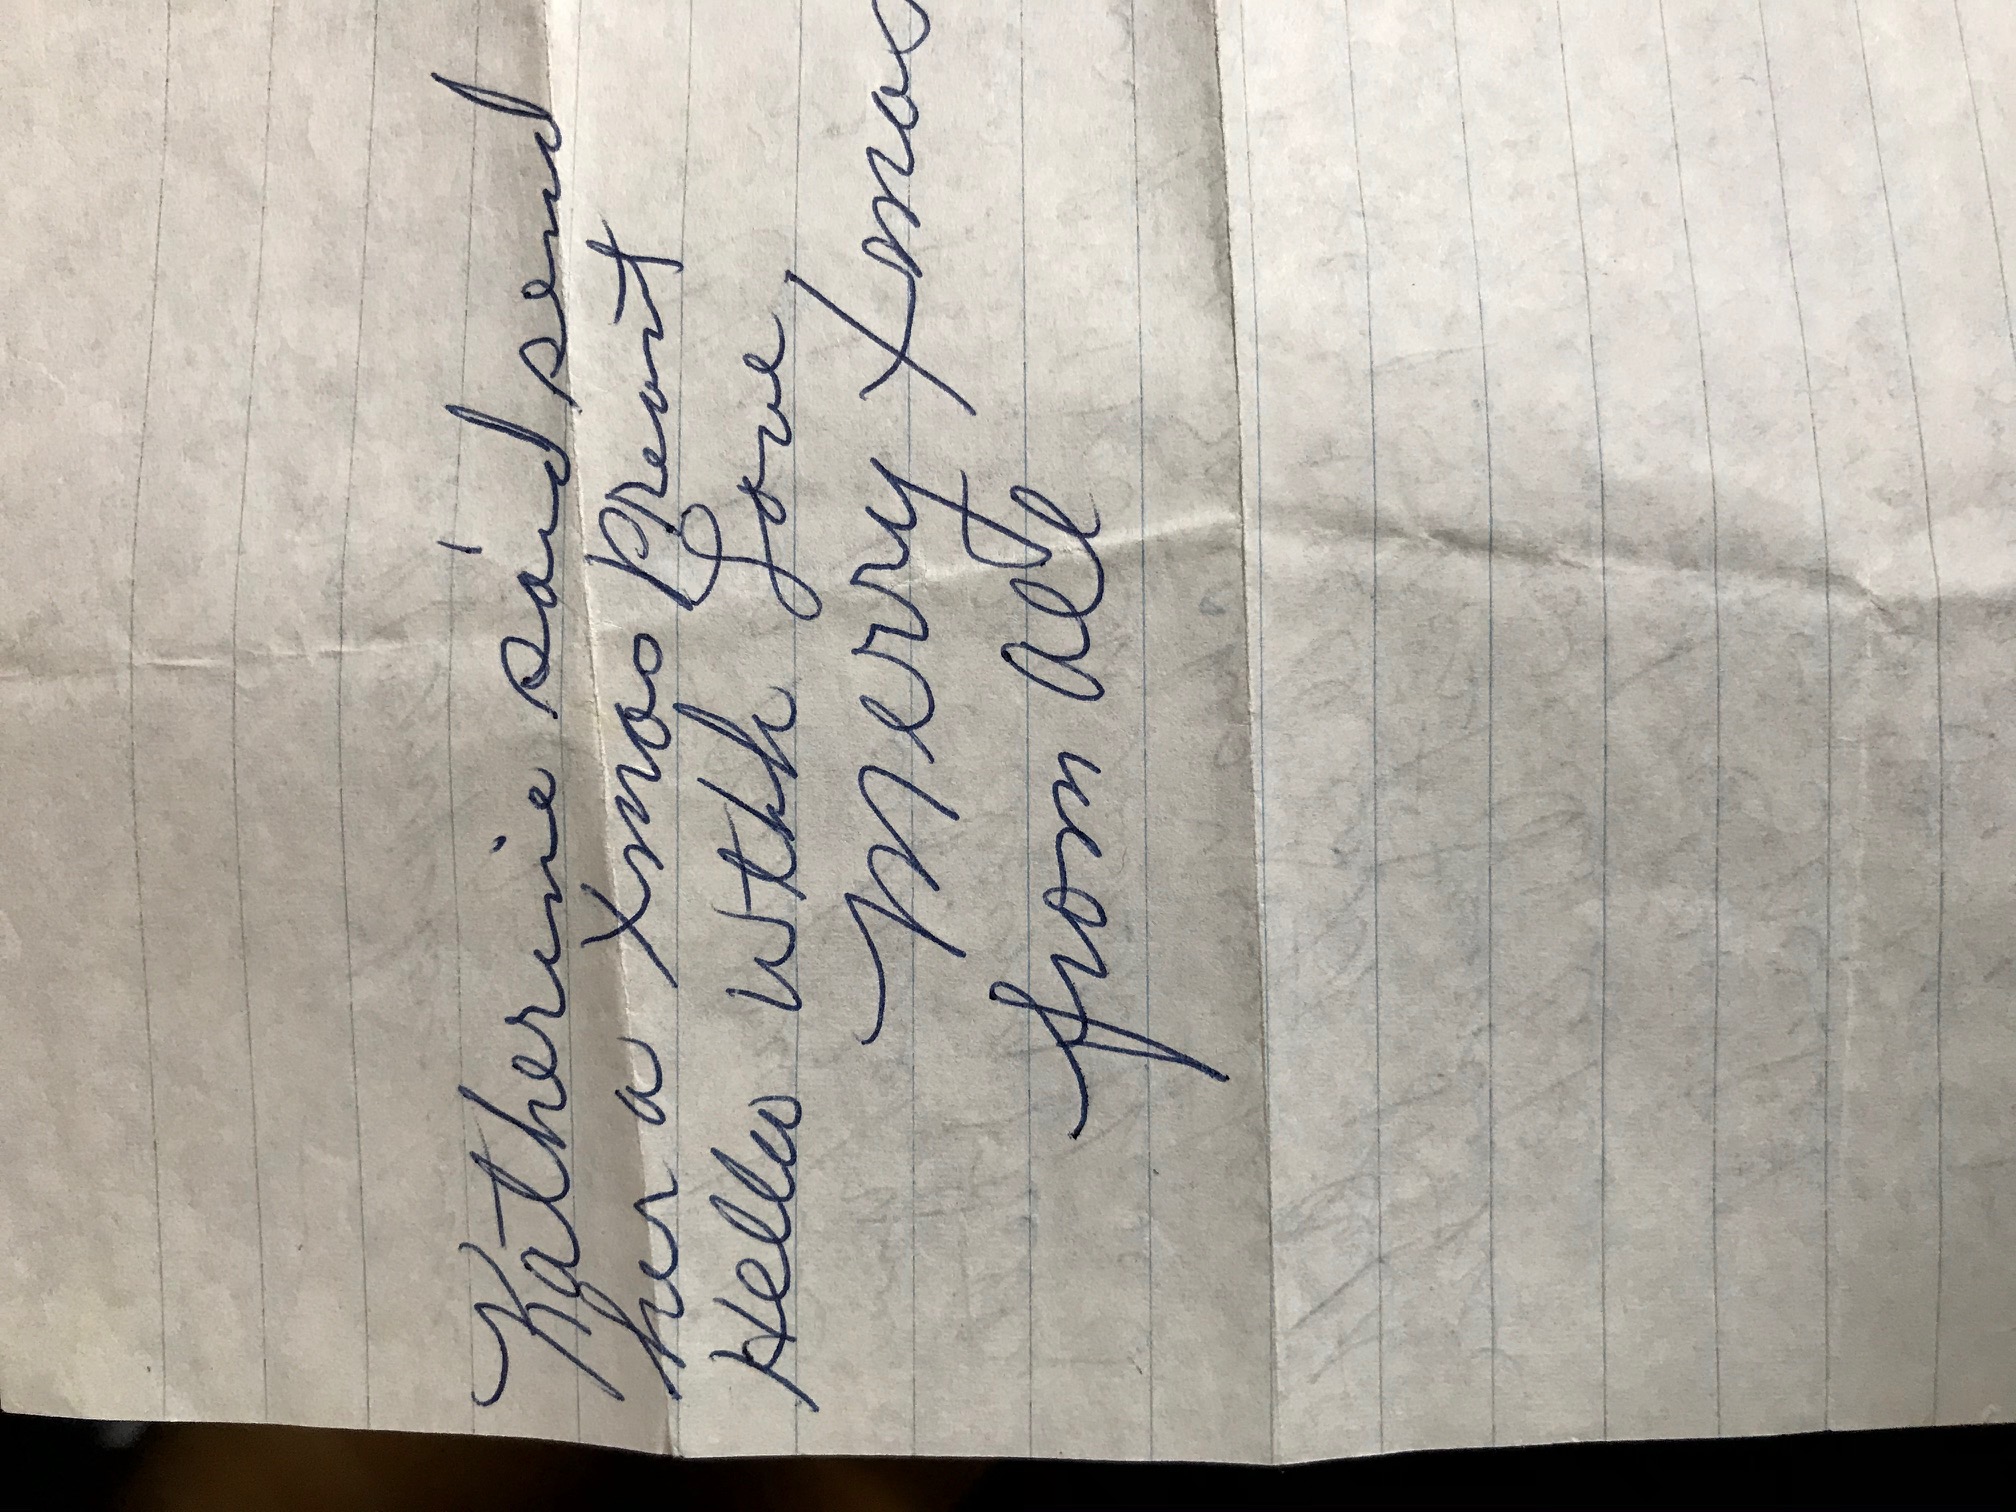 Katherine said send
her a Xmas Preant
Hello with Love
Merry Xmas
from all